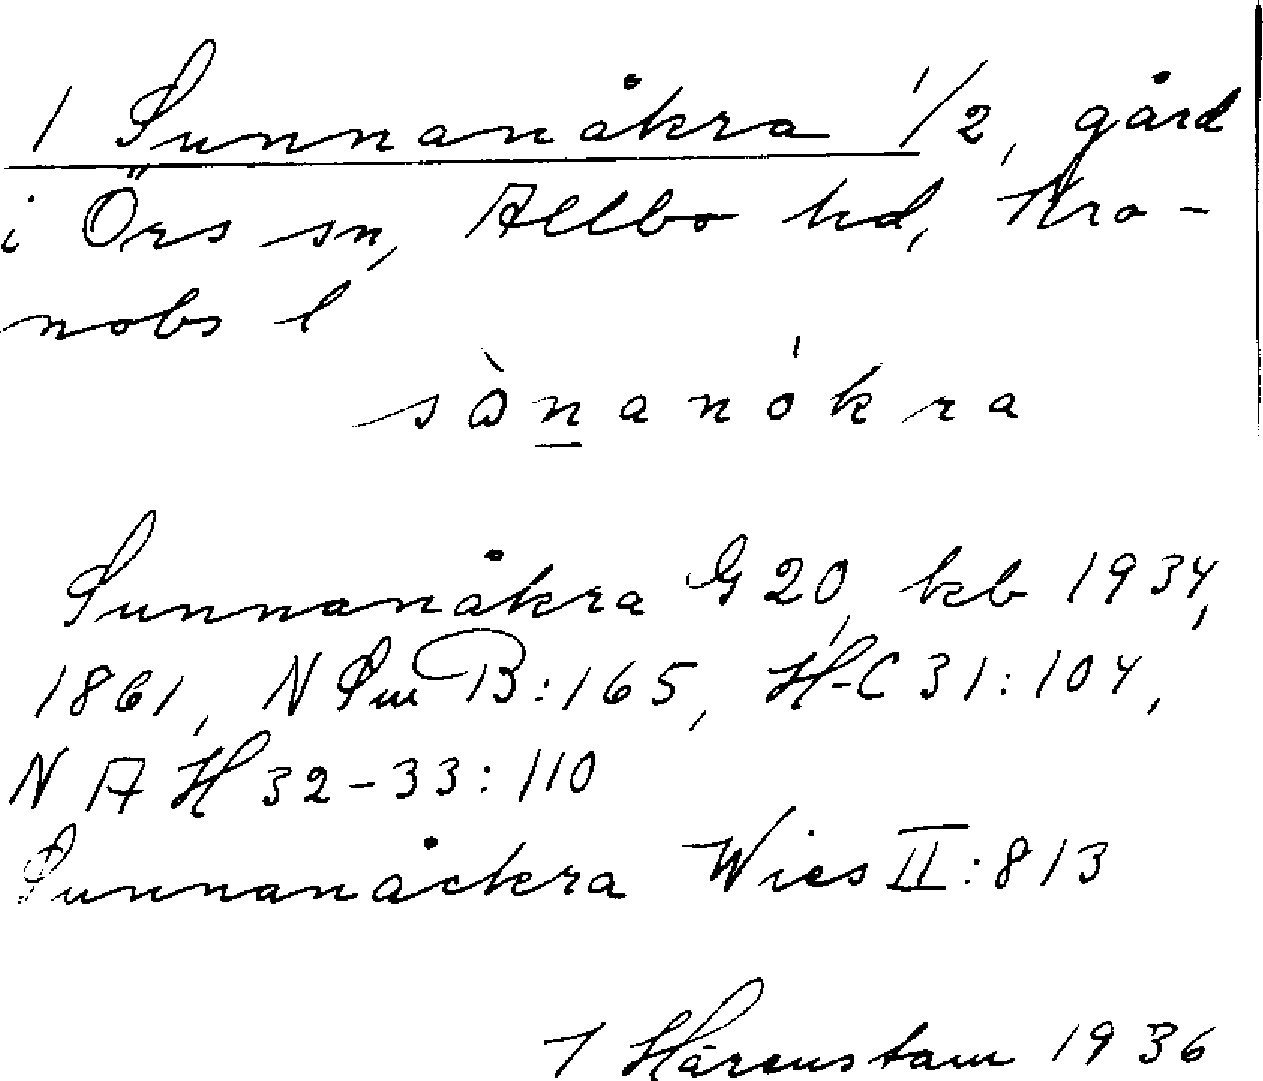 1 Sunnanåkra 1/2, gård
i Örs sn, Allbo hd, Kro-
nobs l
sònanókra
Sunnanåkra G 20, kb 1934,
1861, N Sm B:165, H-C 31:104,
N A H 32-33:110
Sunnanåckra Wies II:813
Hårenstam 1936